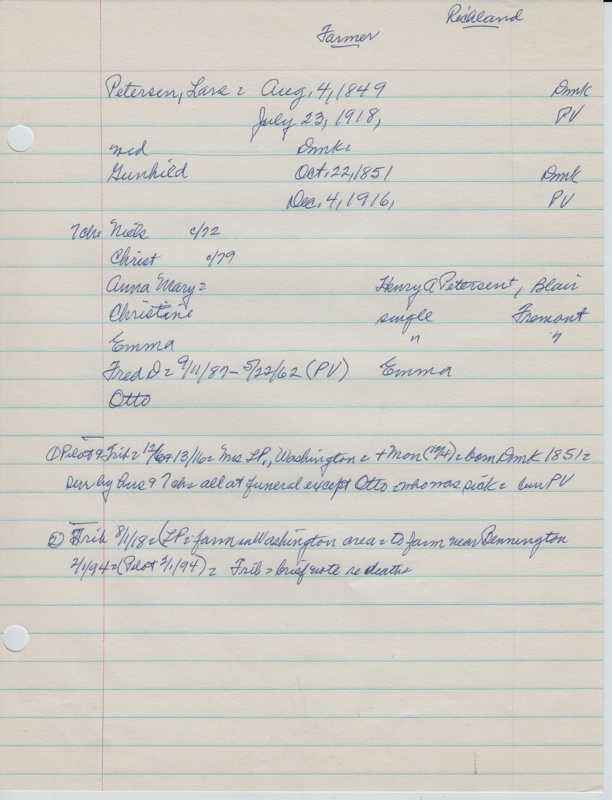 Richland
Farmer
Petersen, Lars = Aug. 4, 1849 Dmk
July 23, 1918, PV
md Dmk:
Gunhild Oct. 22, 1851 Dmk
Dec. 4, 1916, PV
7 chn Niels c/72
Christ c/79
Anna Mary = Henry A Petersen, Blair
Christine single Fremont
Emma " "
Fred D = 9/11/87 - 5/22/62 (PV) Emma
Otto
① Pilot & Trib = 13/16 = Mrs LP, Washington = + Mon = born Dmk 1851 =
surv by hus & 7 ch = all at funeral except Otto = who was sick = bur PV
② Trib 8/1/18 = (LP = farm in Washington area = to farm near Bennington
2/1/94 = (Pilot 2/1/94) = Trib = brief note re death =